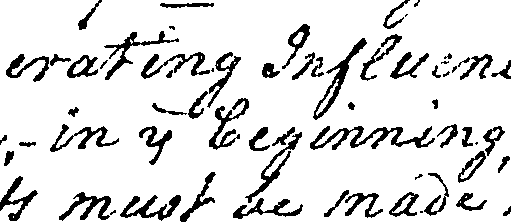 erating Influen
,- in ye Beginning,
ts must be made